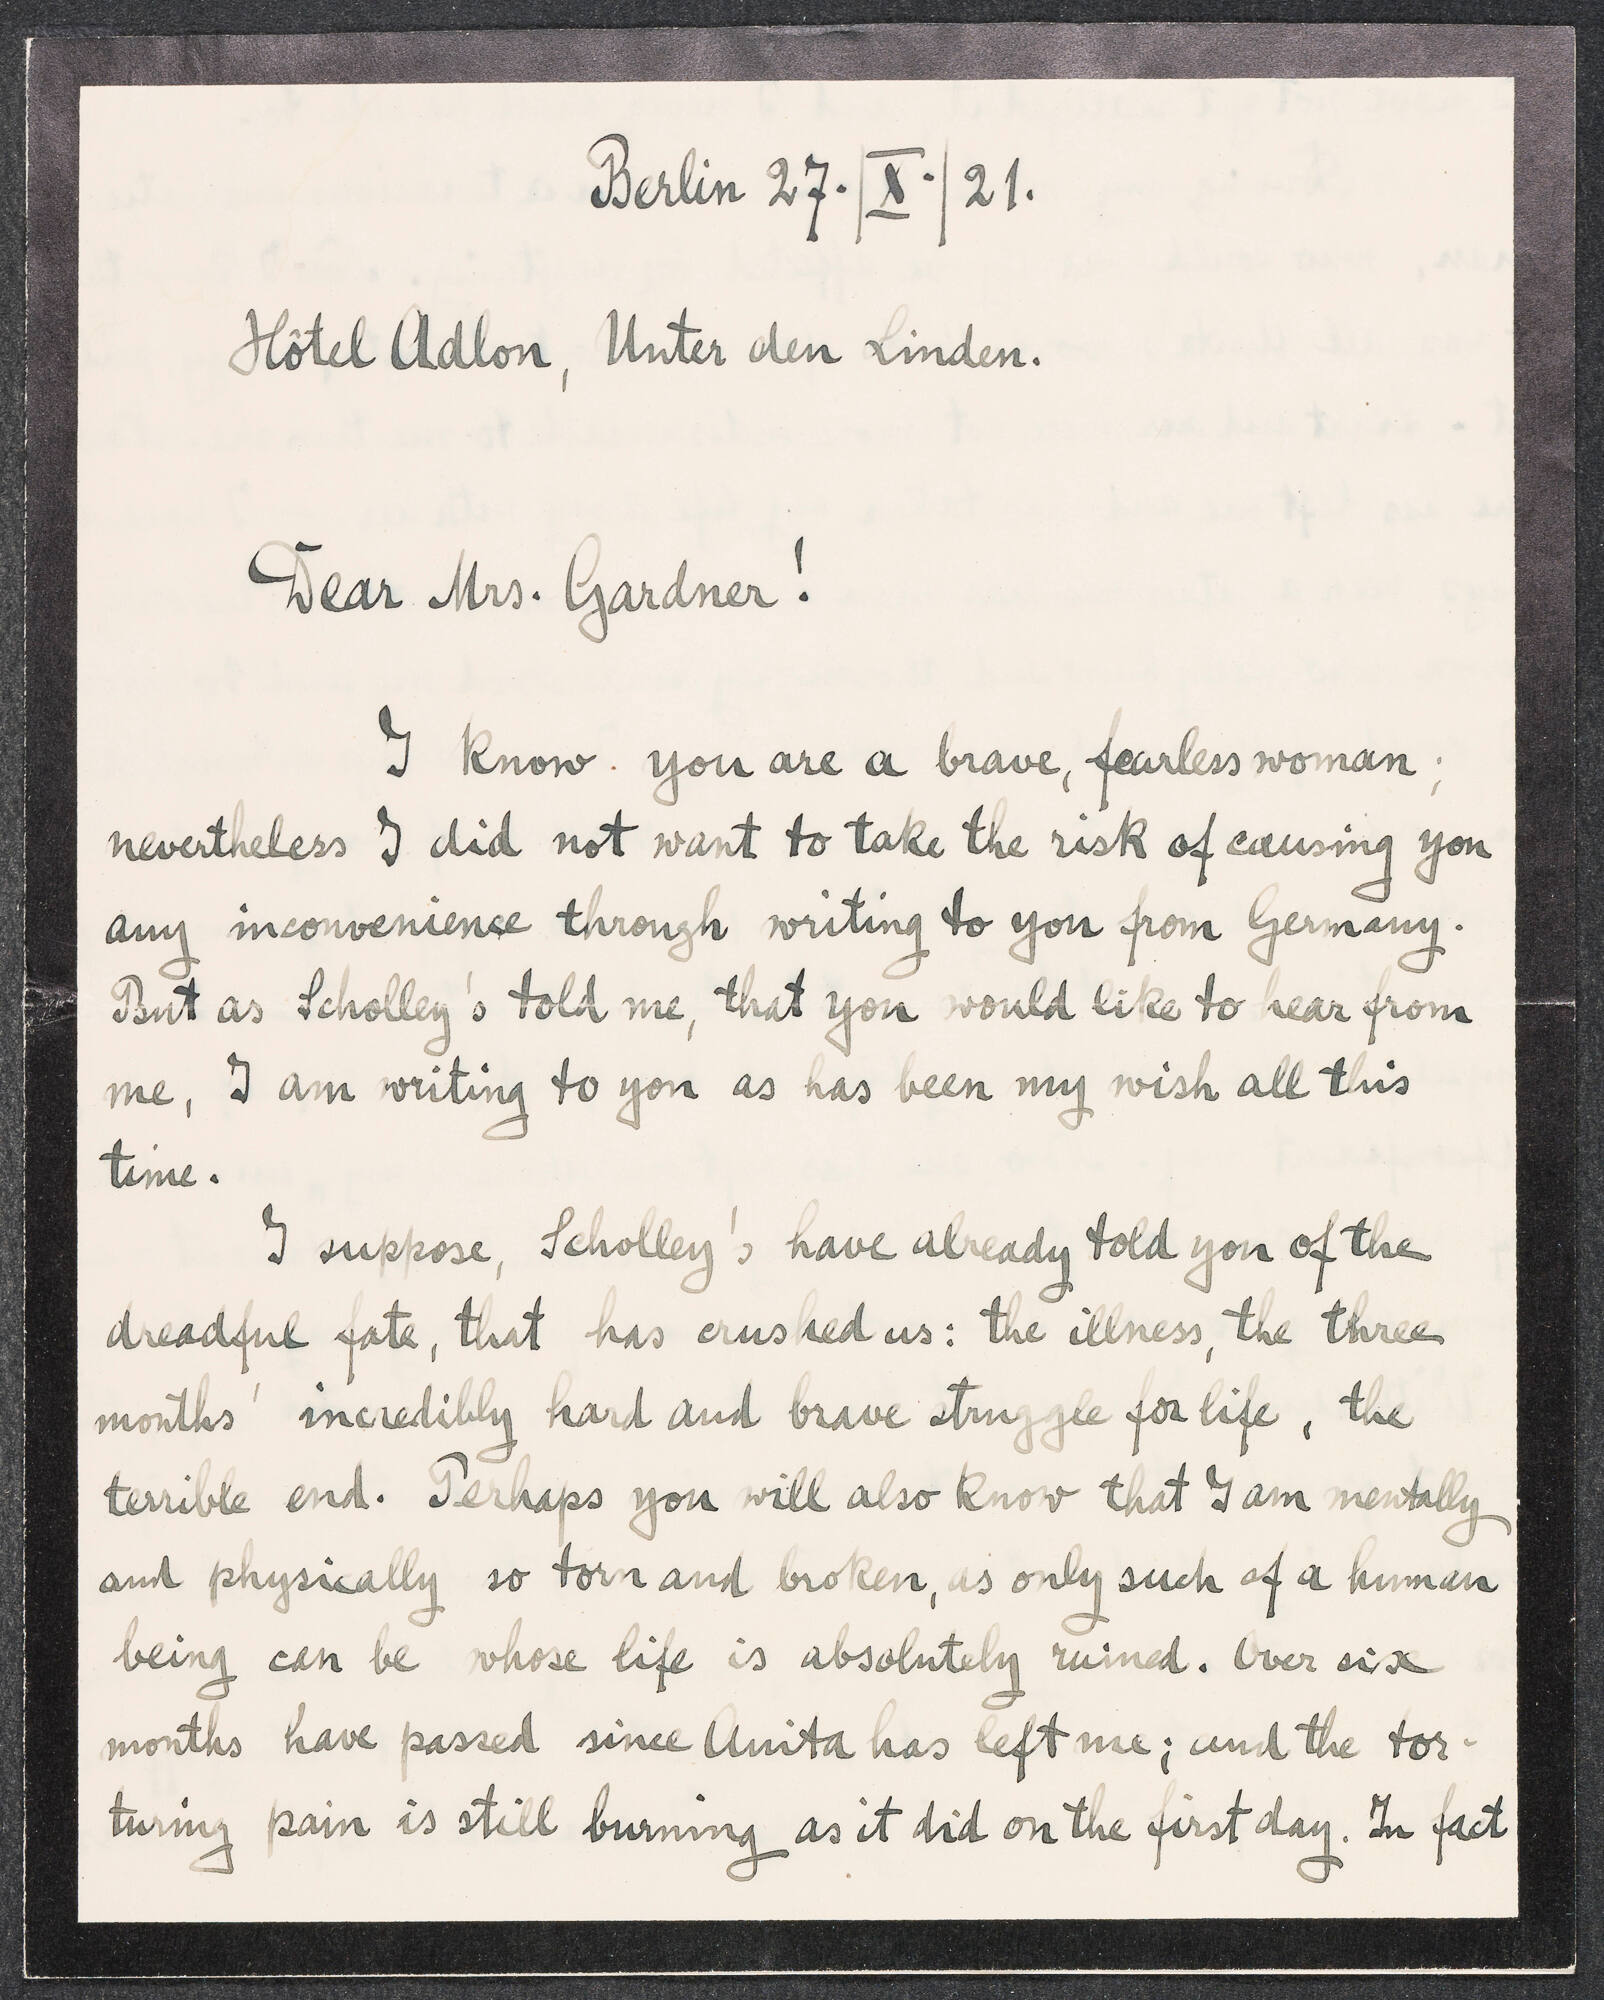 Berlin 27.|X.|21.
Hôtel Adlon, Unter den Linden.
Dear Mrs. Gardner!
I know you are a brave, fearless woman;
nevertheless I did not want to take the risk of causing you
any inconvenience through writing to you from Germany.
But as Scholley's told me, that you would like to hear from
me, I am writing to you as has been my wish all this
time.
I suppose, Scholley's have already told you of the
dreadful fate, that has crushed us: the illness, the three
months' incredibly hard and brave struggle for life, the
terrible end. Perhaps you will also know that I am mentally
and physically so torn and broken, as only such of a human
being can be whose life is absolutely ruined. Over six
months have passed since Anita has left me; and the tor-
turing pain is still burning as it did on the first day. In fact